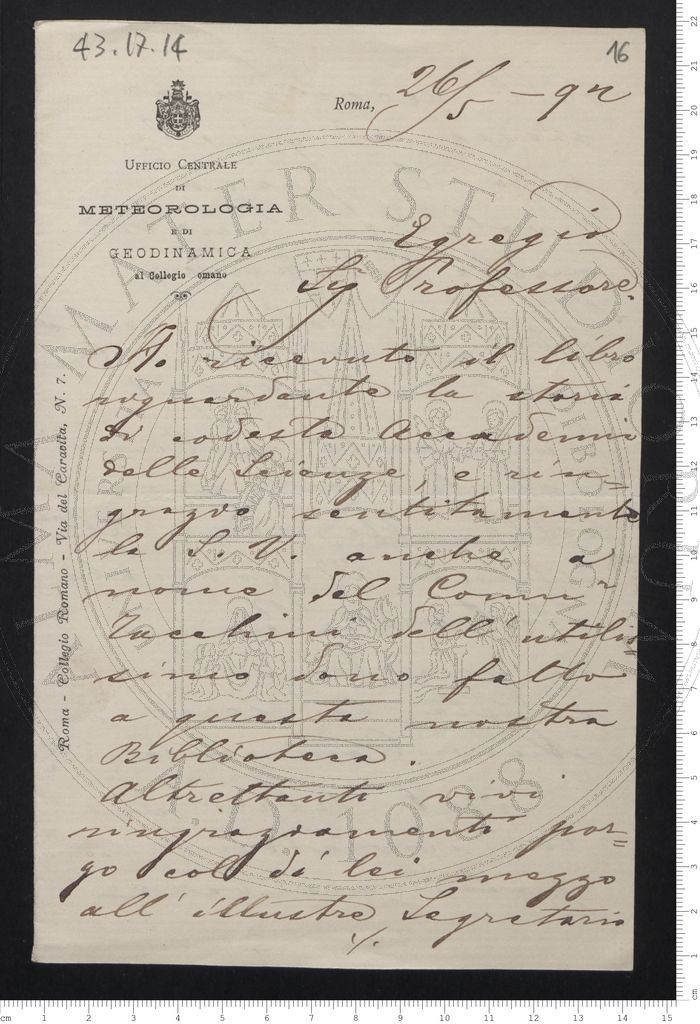 43.17.14
16
Roma, 26/5 - 92
UFFICIO CENTRALE
DI
METEOROLOGIA
E DI
GEODINAMICA
al Collegio omano
Roma - Collegio Romano - Via del Caravita, N. 7.
Egregio
Sig Professore
Ho ricevuto il libro
riguardante la storia
di codesta Accademia
delle Scienze, e rin=
grazio sentitamente
la S. V. anche a
nome del Comm.r
Tacchini dell' utilis=
simo dono fatto
a questa nostra
Biblioteca.
Altrettanti vivi
ringraziamenti por=
go col di lei mezzo
all' illustre Segretario
./.
ALMA MATER STUDIORUM
A.D. 1088
cm 1 2 3 4 5 6 7 8 9 10 11 12 13 14 15
cm 1 2 3 4 5 6 7 8 9 10 11 12 13 14 15 16 17 18 19 20 21 22